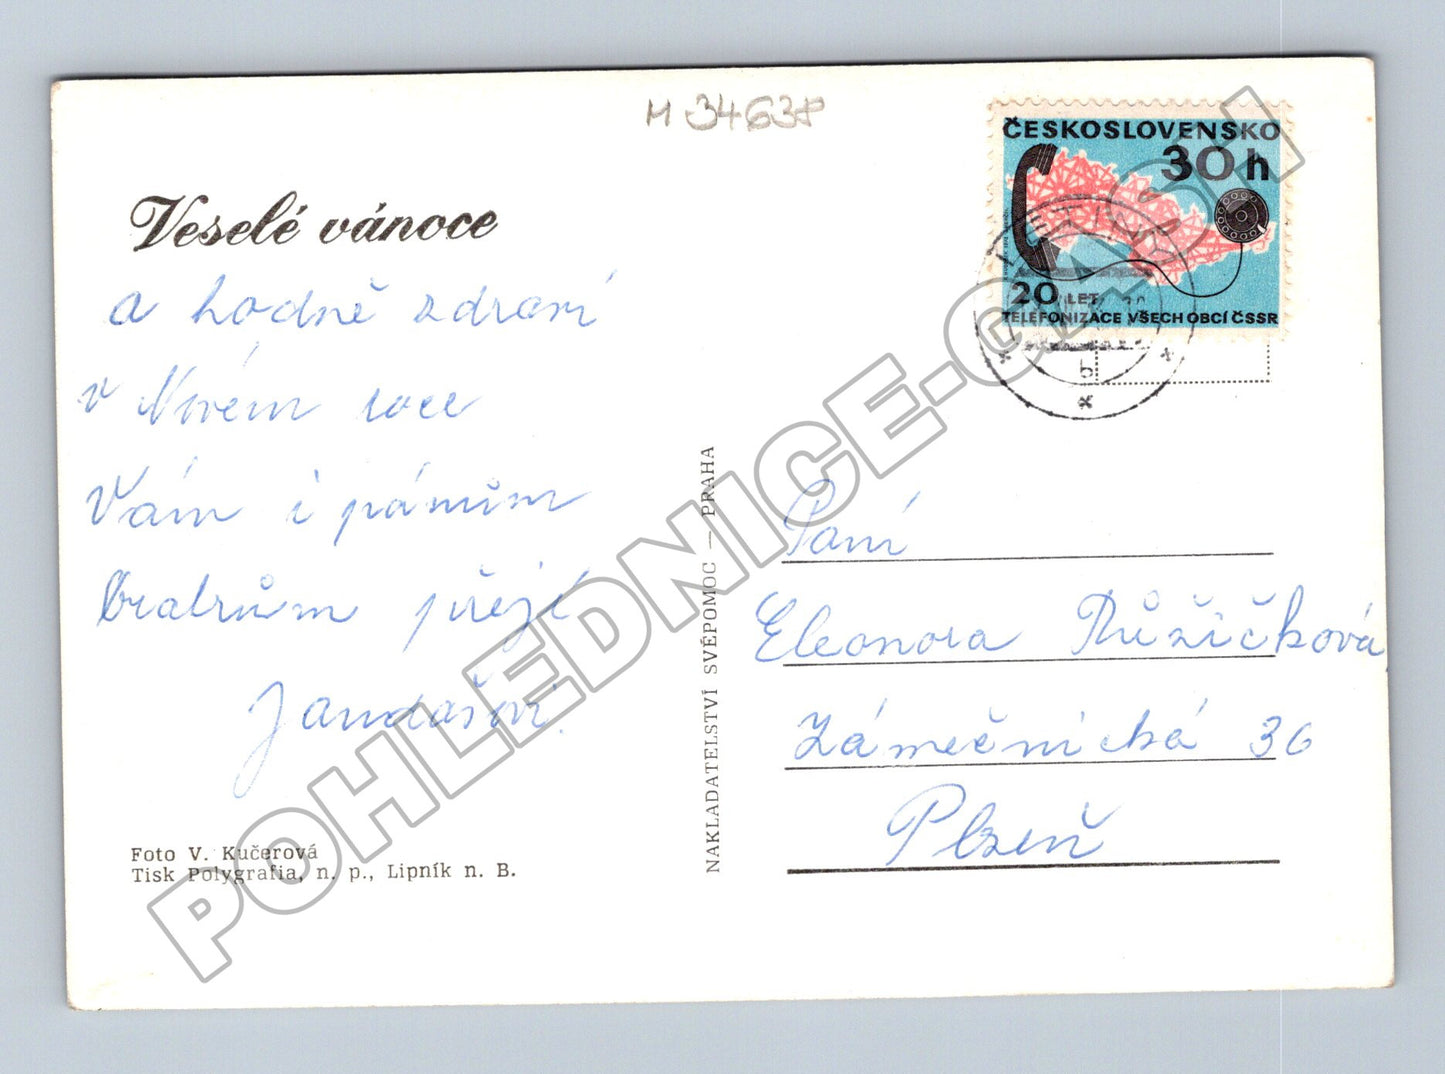 M 34638
ČESKOSLOVENSKO
30 h
20 LET
TELEFONIZACE VŠECH OBCÍ ČSSR
b
Veselé vánoce
a hodně zdraví
v Novém roce
Vám i pánům
bratrům přejí
Jandašovi.
Foto V. Kučerová
Tisk Polygrafia, n. p., Lipník n. B.
NAKLADATELSTVÍ SVÉPOMOC — PRAHA
Paní
Eleonora Růžičková
Zámečnická 36
Plzeň
POHLEDNICE-CASH